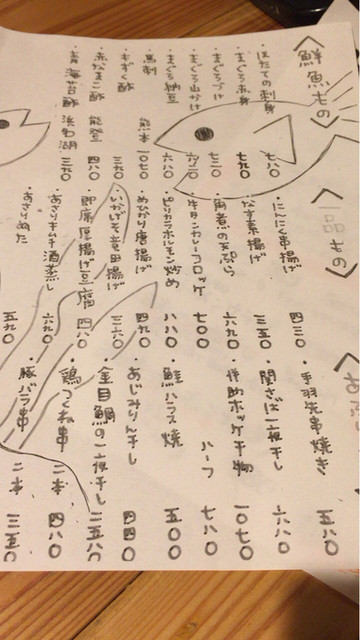 〈鮮魚もの〉
・ほたての刺身 七八〇
・まぐろ赤身 七九〇
・まぐろづけ 七三〇
・まぐろ山かけ
・まぐろ納豆 六八〇
・馬刺 熊本 一〇七〇
・もずく酢 三九〇
・赤なまこ酢 能登 四八〇
・青海苔酢 浜名湖 三九〇
〈一品もの〉
・にんにく串揚げ 四三〇
・なす素揚げ 三五〇
・角煮の天ぷら 六九〇
・牛タンカレーコロッケ 七〇〇
・ピリカラホルモン炒め 八八〇
・めひかり唐揚げ 四九〇
・いかげそ竜田揚げ 三六〇
・即席厚揚げ豆腐 四八〇
・あさりキムチ酒蒸し 六九〇
・あさりぬた 五九〇
・手羽先串焼き 五八〇
・開さば一夜干し 六八〇
ホッケ干物 一〇七〇
ハーフ 七八〇
・鮭ハラス焼 五〇〇
・あじみりん干し 四四〇
・金目鯛の一夜干し 一五八〇
・鶏つくね串 二本 四八〇
・豚バラ串 二本 三五〇